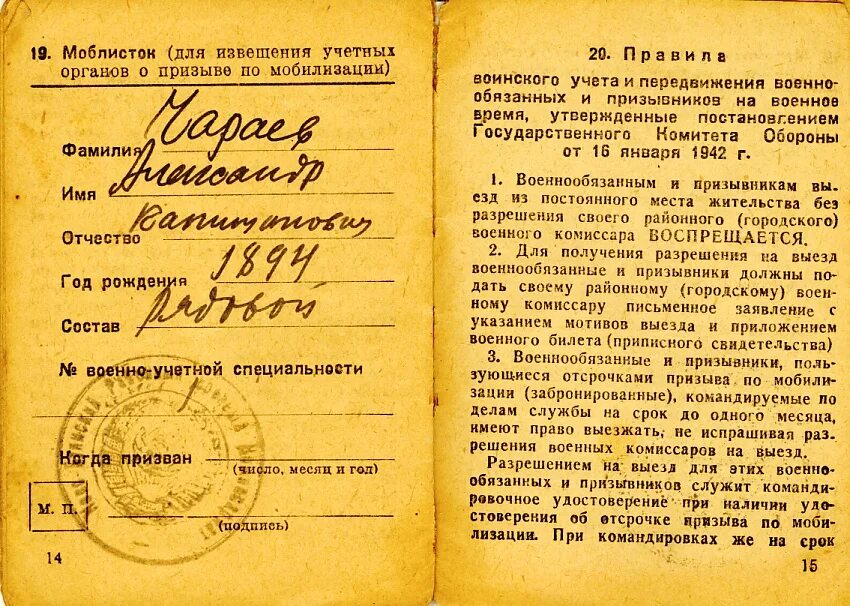 19. Моблисток (для извещения учетных
органов о призыве по мобилизации)
Фамилия Чараев
Имя Александр
Отчество Капитонович
Год рождения 1894
Состав Рядовой
№ военно-учетной специальности
1
Когда призван
(число, месяц и год)
М. П.
(подпись)
14
20. Правила
воинского учета и передвижения военно-
обязанных и призывников на военное
время, утвержденные постановлением
Государственного Комитета Обороны
от 16 января 1942 г.
1. Военнообязанным и призывникам вы-
езд из постоянного места жительства без
разрешения своего районного (городского)
военного комиссара ВОСПРЕЩАЕТСЯ.
2. Для получения разрешения на выезд
военнообязанные и призывники должны по-
дать своему районному (городскому) воен-
ному комиссару письменное заявление с
указанием мотивов выезда и приложением
военного билета (приписного свидетельства)
3. Военнообязанные и призывники, поль-
зующиеся отсрочками призыва по мобили-
зации (забронированные), командируемые по
делам службы на срок до одного месяца,
имеют право выезжать, не испрашивая раз-
решения военных комиссаров на выезд.
Разрешением на выезд для этих военно-
обязанных и призывников служит команди-
ровочное удостоверение при наличии удо-
стоверения об отсрочке призыва по моби-
лизации. При командировках же на срок
15